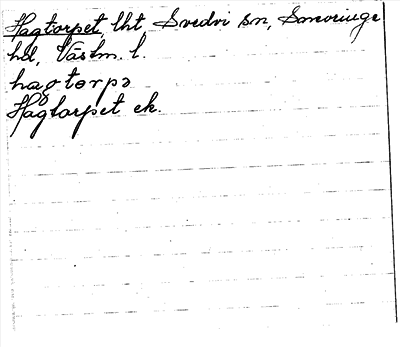 Hagtorpet, lht, Svedvi sn, Snevringe
hd, Västm. l.
hagtɵrpə
Hagtorpet ek.